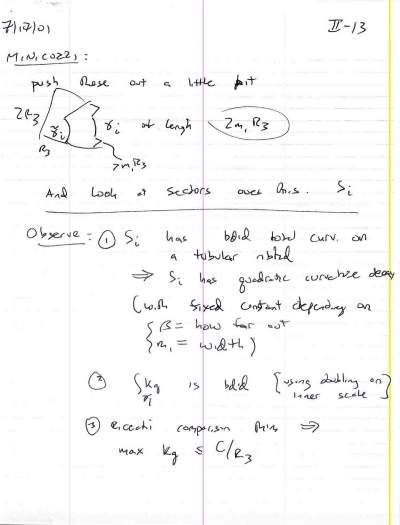 7/17/01 II-13
MINICOZZI:
push these out a little bit
2R3 γi γi of length 2m, R3
R3
2m, R3
And look at sectors over this. Si
Observe: ① Si has bdd total curv. on
a tubular nbhd
⇒ Si has quadratic curvature decay
(with fixed constant depending on
{ β = how far out
m, = width )
② ∫γi kg is bdd {using doubling on
inner scale}
③ Riccati comparison thm ⇒
max kg ≤ C/R3